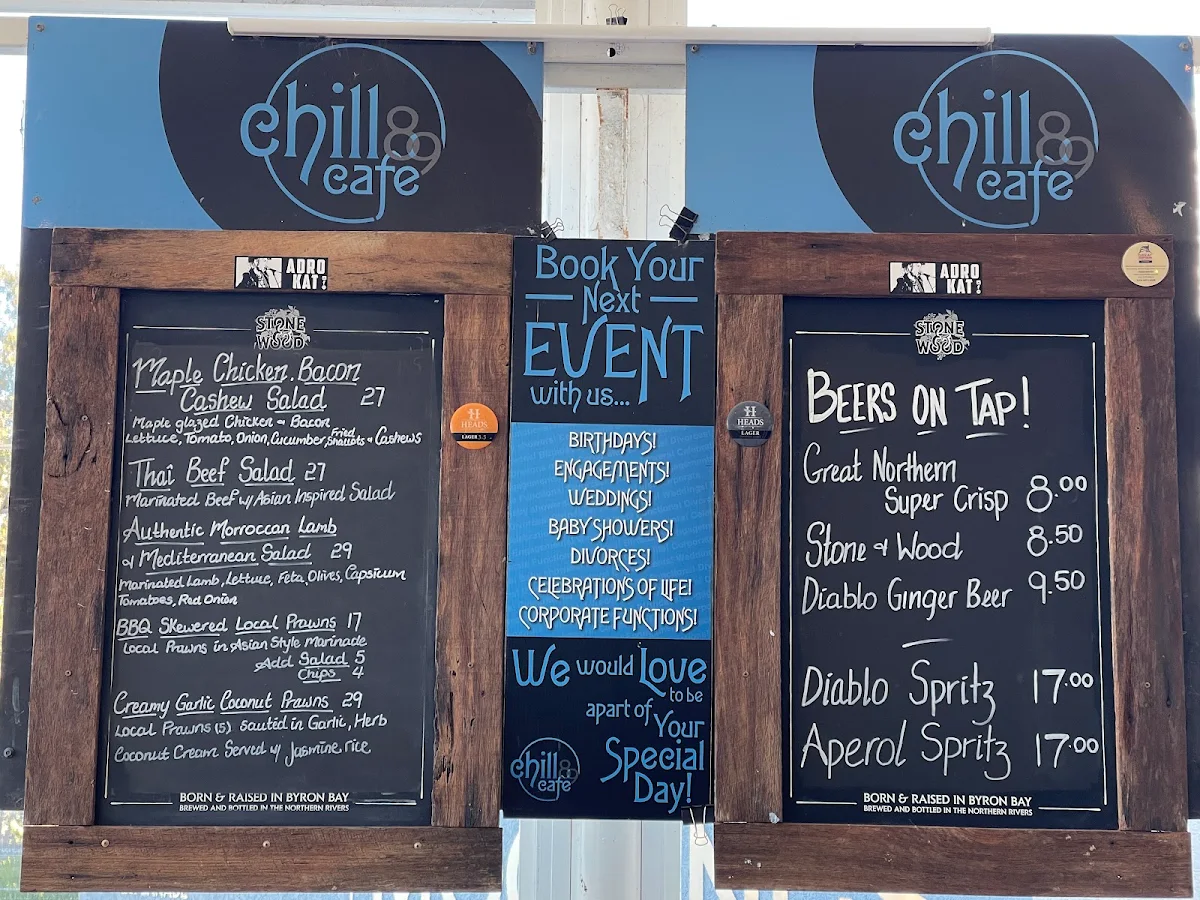 chill 89
cafe
ADRO
KAT
STONE
& WOOD
Maple Chicken. Bacon
Cashew Salad 27
Maple glazed Chicken & Bacon
Lettuce, Tomato, Onion, Cucumber, Fried Shallots & Cashews
Thai Beef Salad 27
Marinated Beef w/ Asian Inspired Salad
Authentic Morroccan Lamb
& Mediterranean Salad 29
Marinated Lamb, Lettuce, Feta, Olives, Capsicum
Tomatoes, Red Onion
BBQ Skewered Local Prawns 17
Local Prawns in Asian Style Marinade
Add Salad 5
Chips 4
Creamy Garlic Coconut Prawns 29
Local Prawns (5) sautéd in Garlic, Herb
Coconut Cream Served w/ Jasmine rice
BORN & RAISED IN BYRON BAY
BREWED AND BOTTLED IN THE NORTHERN RIVERS
HEADS
LAGER 3.5
Book Your
Next
EVENT
with us...
BIRTHDAYS!
ENGAGEMENTS!
WEDDINGS!
BABY SHOWERS!
DIVORCES!
CELEBRATIONS OF LIFE!
CORPORATE FUNCTIONS!
We would Love
to be
apart of Your
Special
Day!
chill 89
cafe
chill 89
cafe
ADRO
KAT
HEADS
LAGER
STONE
& WOOD
BEERS ON TAP!
Great Northern
Super Crisp 8.00
Stone & Wood 8.50
Diablo Ginger Beer 9.50
Diablo Spritz 17.00
Aperol Spritz 17.00
BORN & RAISED IN BYRON BAY
BREWED AND BOTTLED IN THE NORTHERN RIVERS